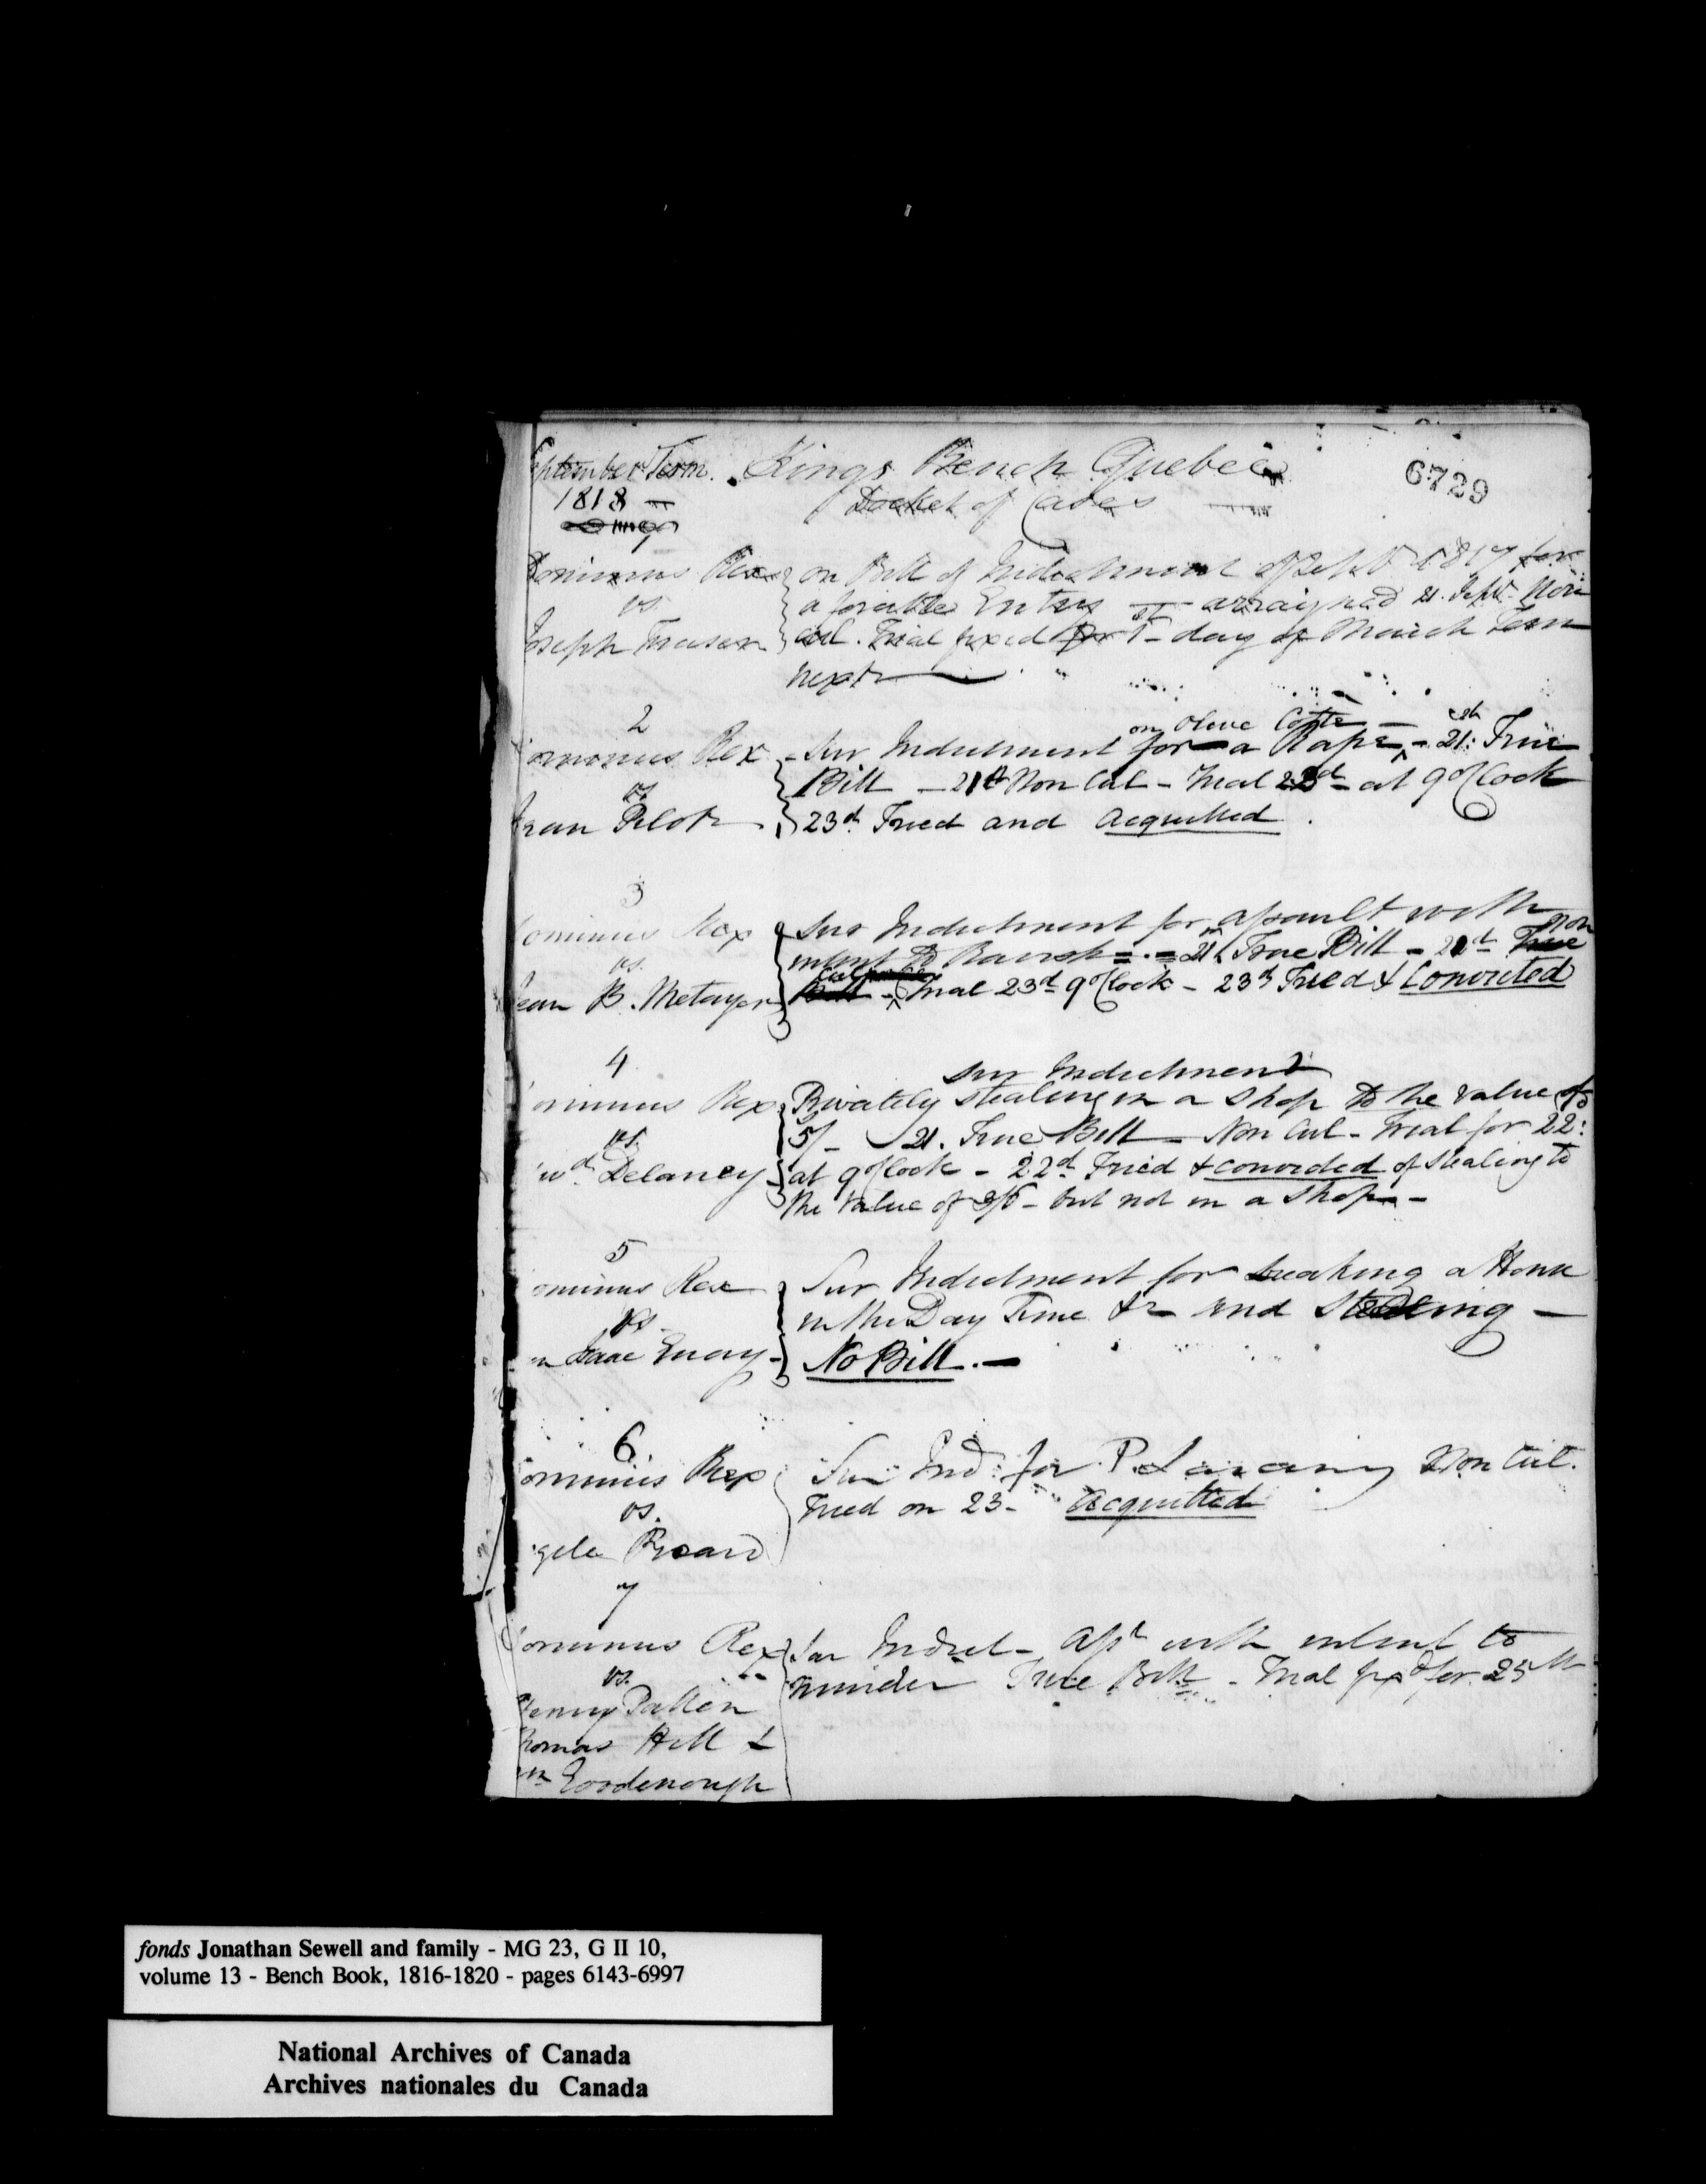 September Term. Kings Bench Quebec
6729
1818 Docket of Cases
Dominus Rex on Bill of Indictment of Sept 1817 for
vs. a forcible Entry — arraigned 21. Sept. Non
Joseph Fraser cul. Trial fixed for 1st day of March Term
next
2
on Olive Cotte
ominus Rex Sur Indictment for a Rape — 21st True
vs. Bill — 21st Non Cul — Trial 23d at 9 oClock
Jean Pilot 23d. Tried and Acquitted
3
ominus Rex Sur Indictment for assault with
vs. intent to Ravish = . = 21 True Bill — 21st True non
ean B. Metayer Bill Cul — Trial 23d 9 oClock — 23d Tried & Convicted
4
Sur Indictment
ominus Rex Privately stealing in a Shop to the value of
vs. 5/- 21. True Bill — Non Cul — Trial for 22:
wd. Delaney at 9 oClock — 22d Tried & convicted of Stealing to
the Value of — but not in a Shop —
5
ominus Rex Sur Indictment for breaking a House
vs. in the Day Time &c and Stealing —
Isaac No Bill . —
6.
ominus Rex Sur Ind: for P. Larceny Non Cul.
vs. Tried on 23 — Acquitted
gele
7
ominus Rex Sur Indict — Asst with intent to
vs. murder True Bill — Trial fixd for 25th
Henry Patten
homas Hill &
Wm Goodenough
fonds Jonathan Sewell and family - MG 23, G II 10,
volume 13 - Bench Book, 1816-1820 - pages 6143-6997
National Archives of Canada
Archives nationales du Canada